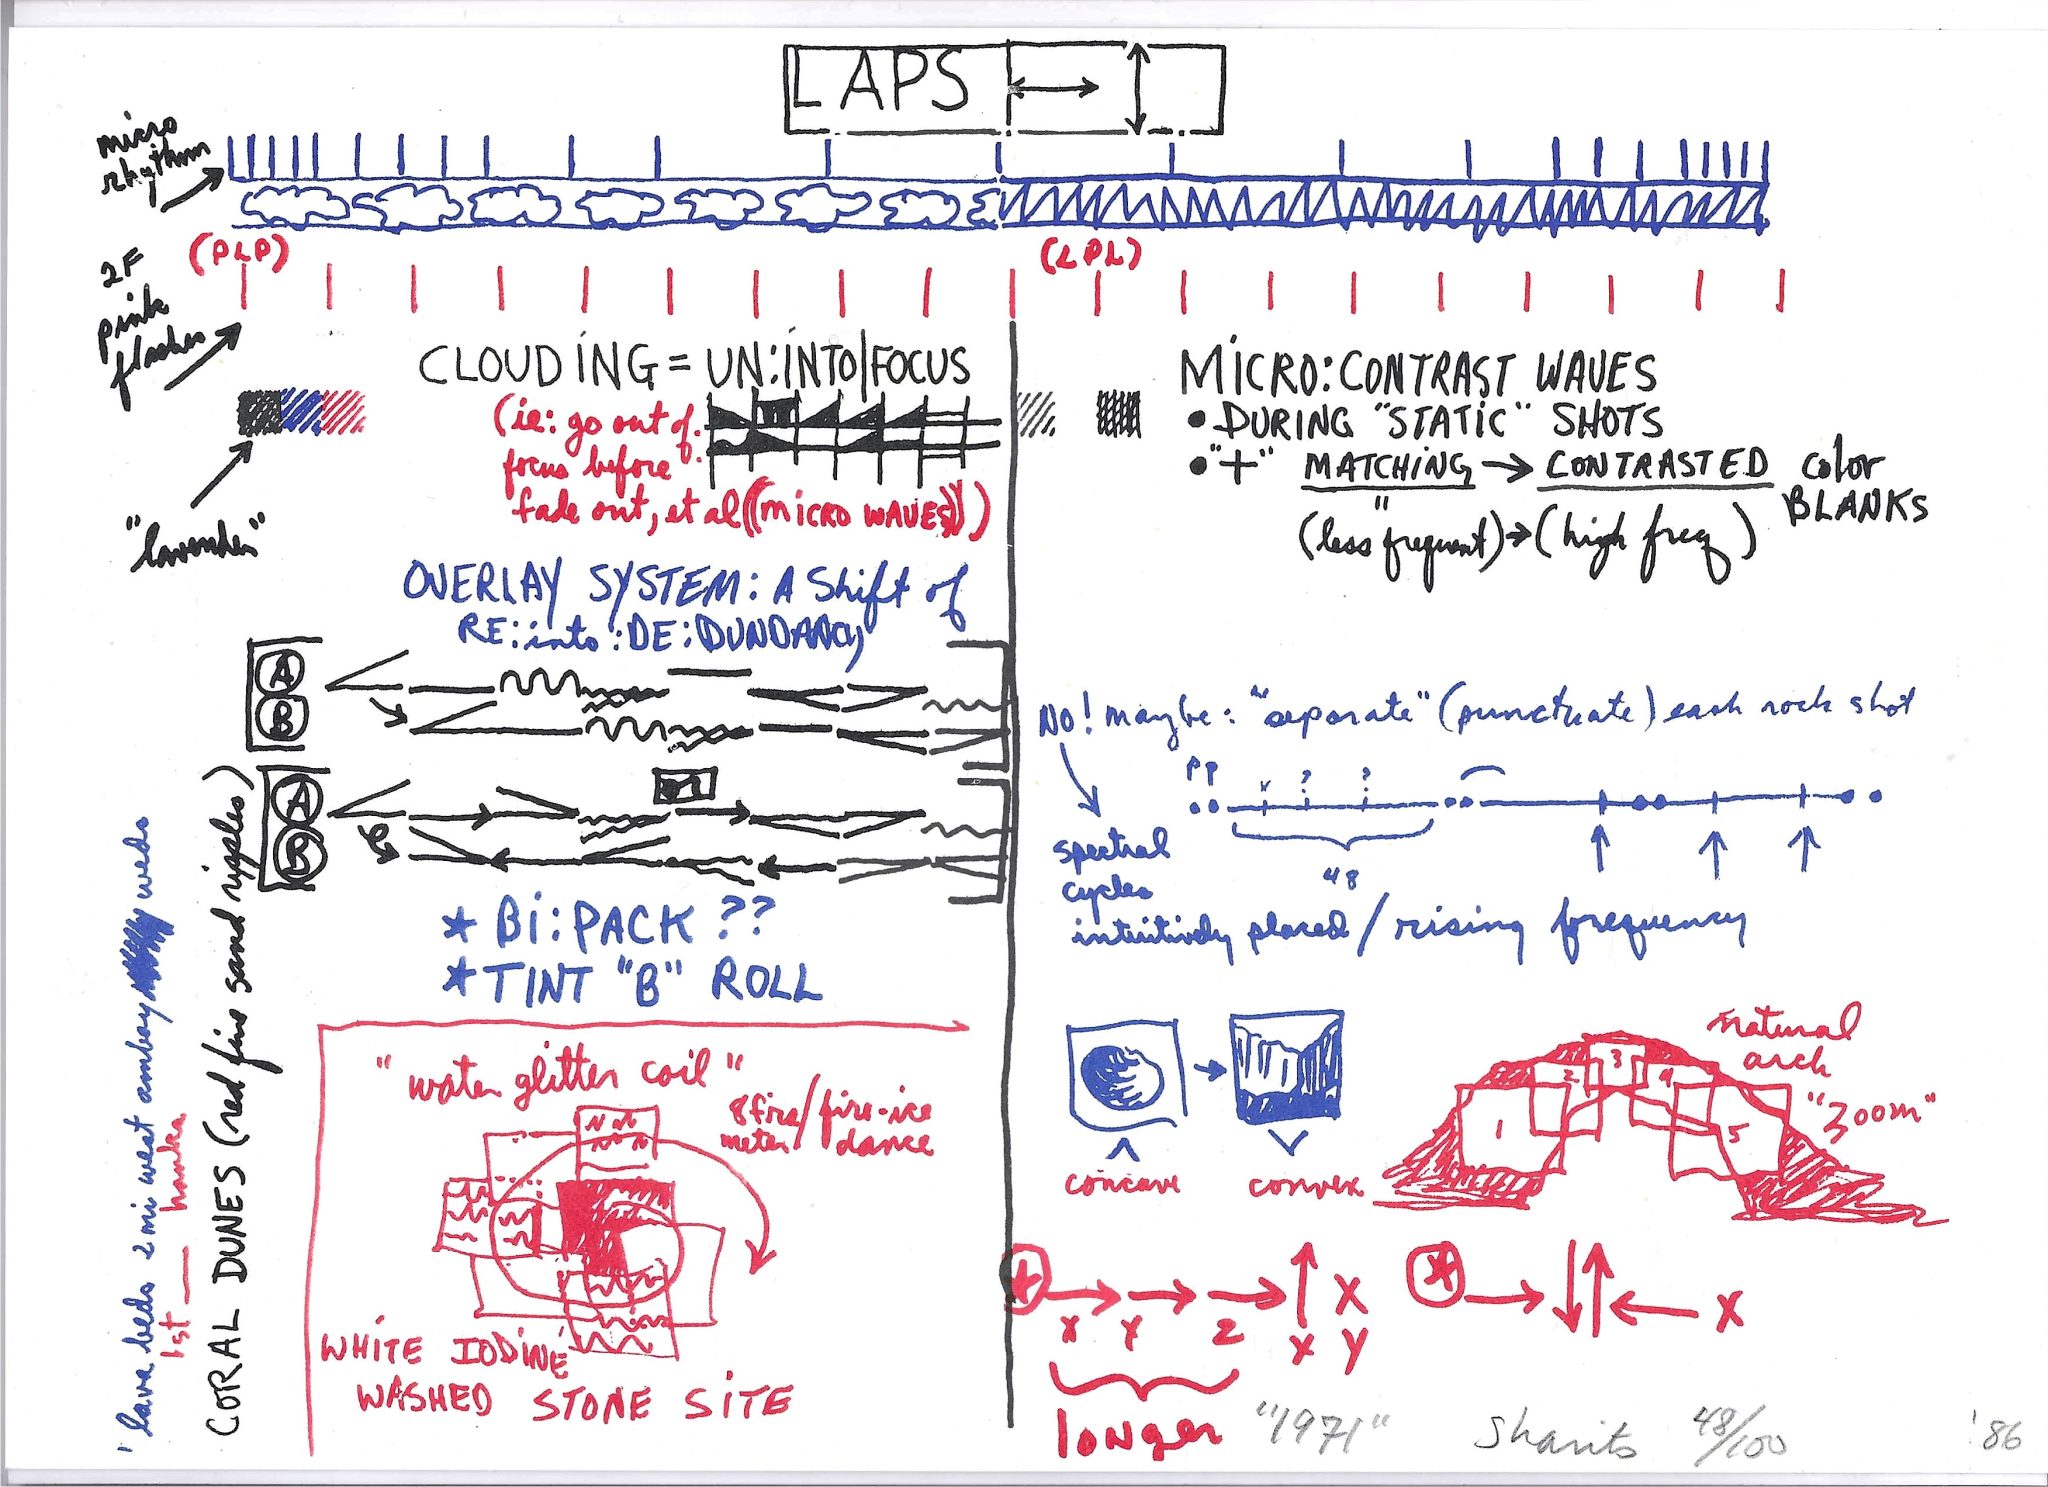 LAPS
micro
rhythm
(PLP)
(LPL)
2F
pink
flashes
"lavender"
CLOUDING = UN:INTO|FOCUS
(ie: go out of
focus before
fade out, et al ((MICRO WAVES)))
MICRO:CONTRAST WAVES
• DURING "STATIC" SHOTS
• "+" MATCHING → CONTRASTED color
BLANKS
(less frequent) → (high freq)
OVERLAY SYSTEM: A Shift of
RE:into:DE:DUNDANCY
A
B
A
B
* Bi:PACK ??
* TINT "B" ROLL
NO! maybe: "separate" (punctuate) each rock shot
PP
? ?
48
spectral
cycles
intuitively placed / rising frequency
lava beds 2 mi west amboy
1st
CORAL DUNES (red fire sand ripples)
"water glitter coil"
8 fire/fire-ice
meter/dance
WHITE IODINE
WASHED STONE SITE
concave
convex
natural
arch
"zoom"
1 2 3 4 5
X Y Z X Y
X
X
longer
"1971"
Sharits 48/100 '86